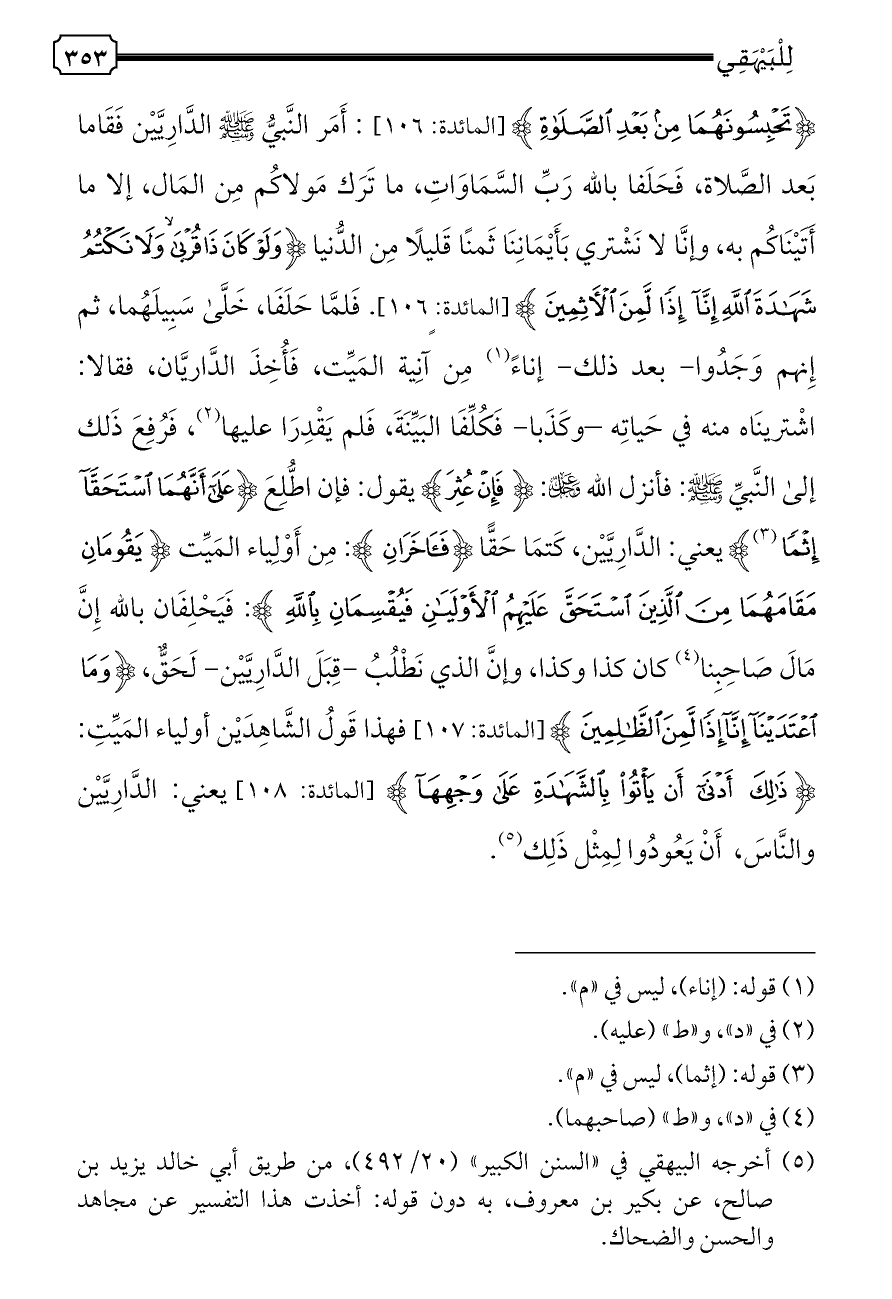 لِلْبَيْهَقِي
٣٥٣
﴿تَحْبِسُونَهُمَا مِنۢ بَعْدِ ٱلصَّلَوٰةِ﴾ [المائدة: ١٠٦] : أَمَر النَّبيُّ ﷺ الدَّارِيَّيْن فَقَاما
بَعد الصَّلاة، فَحَلَفا بالله رَبِّ السَّمَاوَاتِ، ما تَرَك مَولاكُم مِن المَال، إلا ما
أَتَيْنَاكُم به، وإنَّا لا نَشْتري بَأَيْمَانِنَا ثَمنًا قَليلًا مِن الدُّنيا ﴿وَلَوْ كَانَ ذَا قُرْبَىٰۙ وَلَا نَكْتُمُ
شَهَٰدَةَ ٱللَّهِ إِنَّآ إِذًا لَّمِنَ ٱلْأَثِمِينَ﴾ [المائدة: ١٠٦]. فَلمَّا حَلَفَا، خَلَّىٰ سَبِيلَهُما، ثم
إِنهم وَجَدُوا- بعد ذلك- إناءً(١) مِن آنِية المَيِّت، فَأُخِذَ الدَّاريَّان، فقالا:
اشْترينَاه منه في حَياتِه –وكَذَبا- فَكُلِّفَا البَيِّنَةَ، فَلم يَقْدِرَا عليها(٢)، فَرُفِعَ ذَلك
إلىٰ النَّبيِّ ﷺ: فأنزل الله ﷻ: ﴿فَإِنْ عُثِرَ﴾ يقول: فإن اطُّلِعَ ﴿عَلَىٰٓ أَنَّهُمَا ٱسْتَحَقَّآ
إِثْمًا(٣)﴾ يعني: الدَّاريَّيْن، كَتمَا حَقًّا ﴿فَـَٔاخَرَانِ﴾: مِن أَوْلِياء المَيِّت ﴿يَقُومَانِ
مَقَامَهُمَا مِنَ ٱلَّذِينَ ٱسْتَحَقَّ عَلَيْهِمُ ٱلْأَوْلَيَـٰنِ فَيُقْسِمَانِ بِٱللَّهِ﴾: فَيَحْلِفَان بالله إنَّ
مَالَ صَاحِبِنا(٤) كان كذا وكذا، وإنَّ الذي نَطْلُبُ -قِبَلَ الدَّاريَّيْن- لَحَقٌّ، ﴿وَمَا
ٱعْتَدَيْنَآ إِنَّآ إِذًا لَّمِنَ ٱلظَّـٰلِمِينَ﴾ [المائدة: ١٠٧] فهذا قَولُ الشَّاهِدَيْن أولياء المَيِّتِ:
﴿ذَٰلِكَ أَدْنَىٰٓ أَن يَأْتُوا۟ بِٱلشَّهَـٰدَةِ عَلَىٰ وَجْهِهَآ﴾ [المائدة: ١٠٨] يعني: الدَّارِيَّيْن
والنَّاسَ، أَنْ يَعُودُوا لِمِثْل ذَلِك(٥).
(١) قوله: (إناء)، ليس في «م».
(٢) في «د»، و«ط» (عليه).
(٣) قوله: (إثما)، ليس في «م».
(٤) في «د»، و«ط» (صاحبهما).
(٥) أخرجه البيهقي في «السنن الكبير» (٢٠/ ٤٩٢)، من طريق أبي خالد يزيد بن
صالح، عن بكير بن معروف، به دون قوله: أخذت هذا التفسير عن مجاهد
والحسن والضحاك.